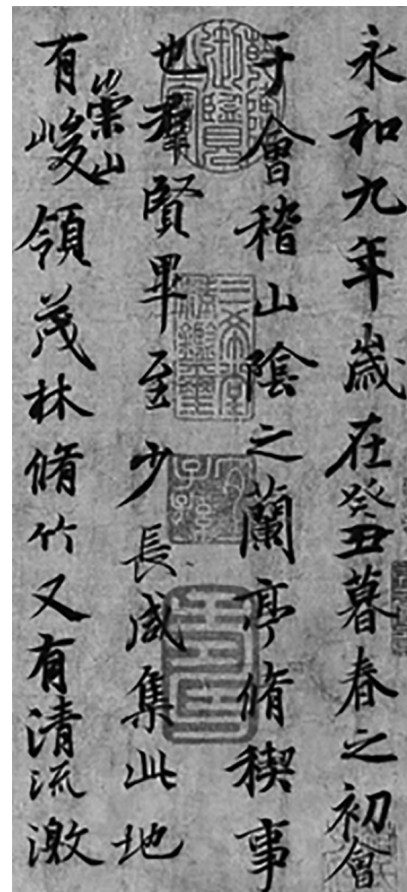 永和九年歲在癸丑暮春之初會
于會稽山陰之蘭亭脩稧事
也羣賢畢至少長咸集此地
有崇山峻領茂林脩竹又有清流激
三希堂
精鑒璽
宜
子孫